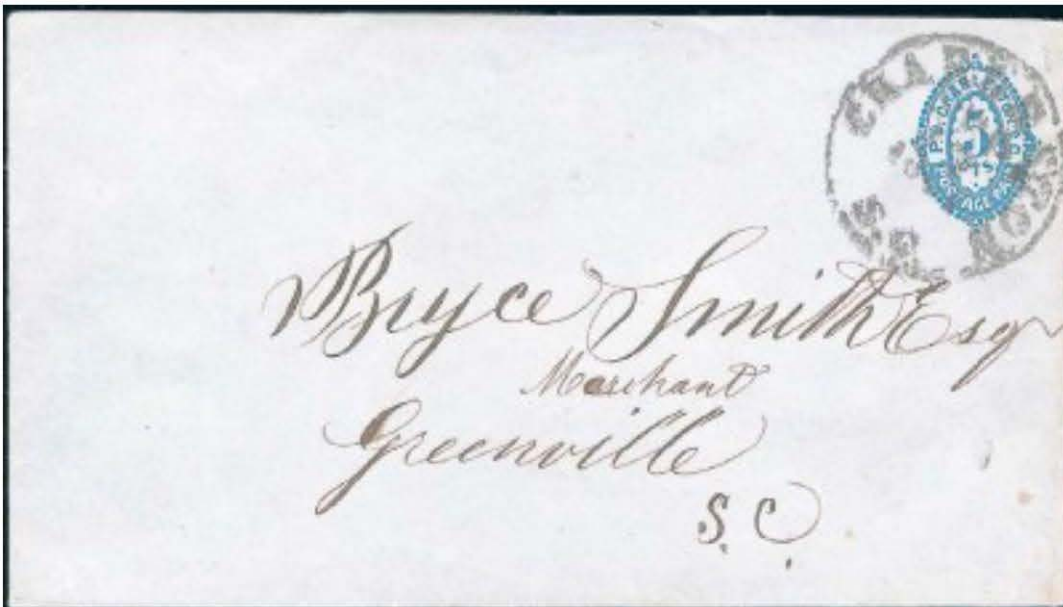 CHARLESTON
S.C.
P.O. CHARLESTON, S.C.
5
POSTAGE PAID
Bryce Smith Esqr
Merchant
Greenville
S. C.